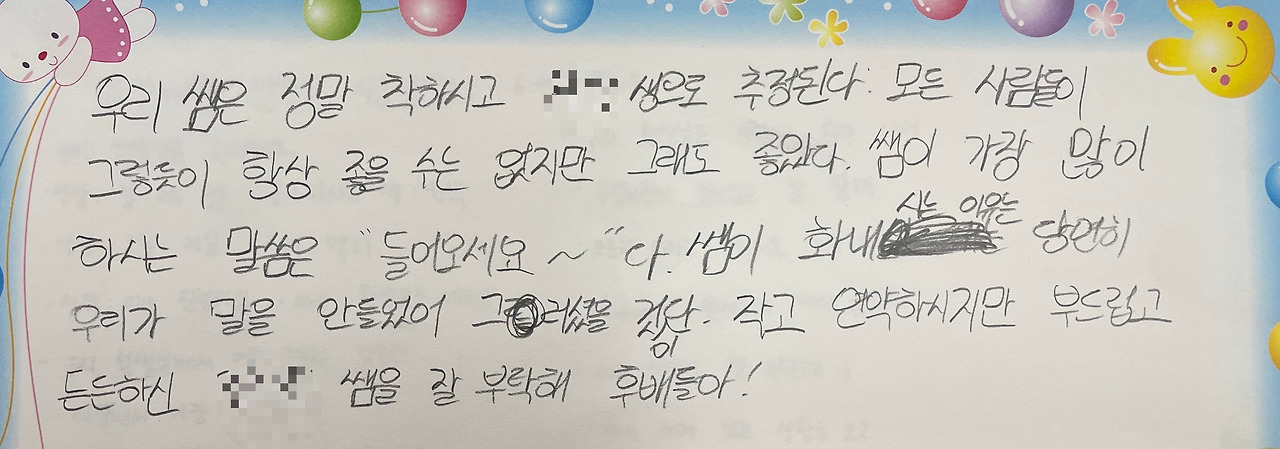 우리 쌤은 정말 착하시고 생으로 추정된다. 모든 사람들이
그렇듯이 항상 좋을 수는 없지만 그래도 좋았다. 쌤이 가장 많이
하시는 말씀은 "들어오세요~"다. 쌤이 화내시는 이유는 당연히
우리가 말을 안들었어 그러셨을 것이당. 작고 연약하시지만 부드럽고
든든하신 쌤을 잘 부탁해 후배들아!